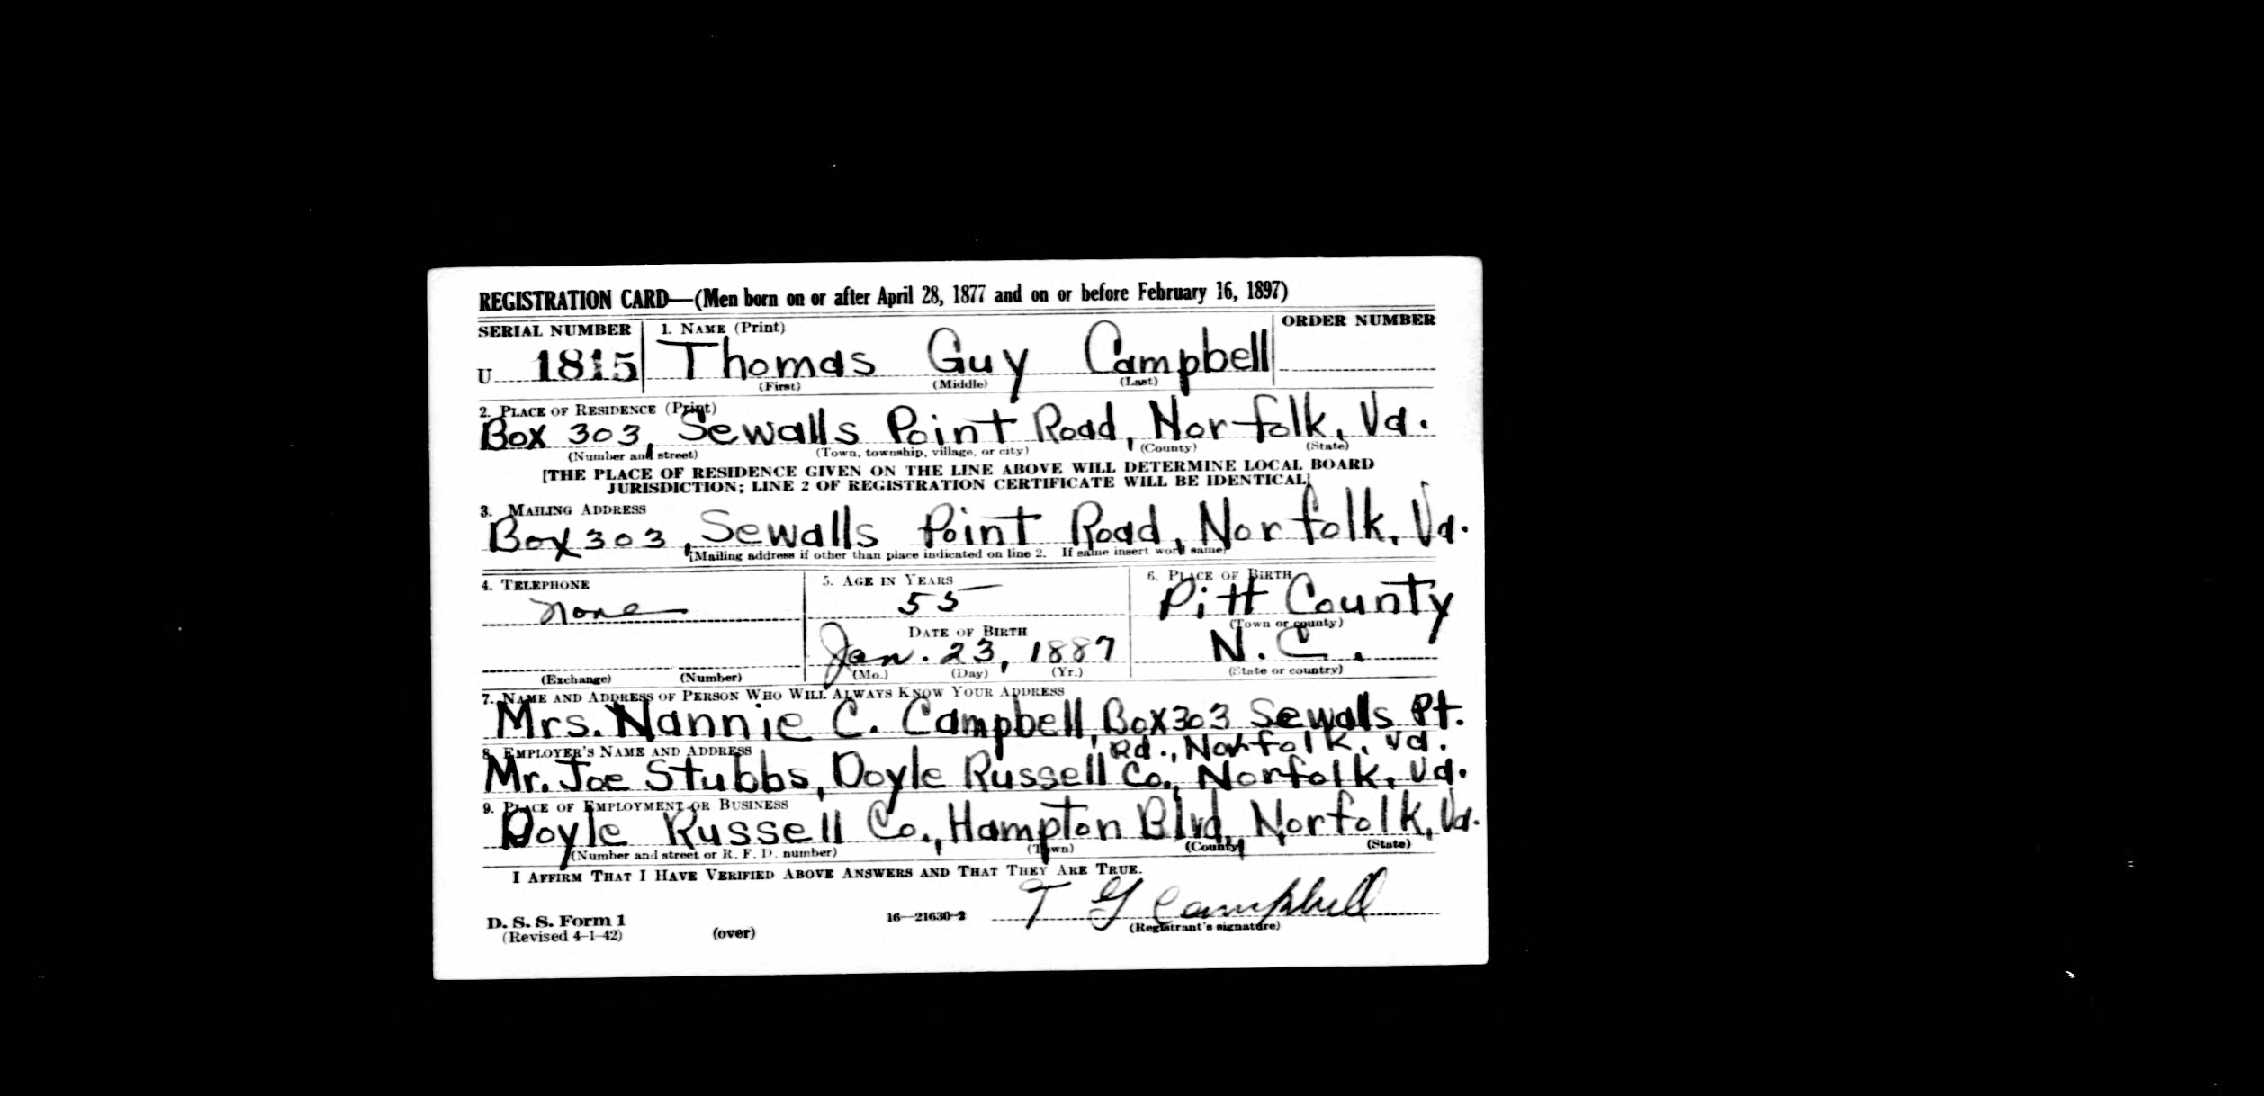 REGISTRATION CARD—(Men born on or after April 28, 1877 and on or before February 16, 1897)
SERIAL NUMBER 1. NAME (Print) ORDER NUMBER
U 1815 Thomas Guy Campbell
(First) (Middle) (Last)
2. PLACE OF RESIDENCE (Print)
Box 303, Sewalls Point Road, Norfolk, Va.
(Number and street) (Town, township, village, or city) (County) (State)
[THE PLACE OF RESIDENCE GIVEN ON THE LINE ABOVE WILL DETERMINE LOCAL BOARD
JURISDICTION; LINE 2 OF REGISTRATION CERTIFICATE WILL BE IDENTICAL]
3. MAILING ADDRESS
Box 303, Sewalls Point Road, Norfolk, Va.
[Mailing address if other than place indicated on line 2. If same insert word same]
4. TELEPHONE 5. AGE IN YEARS 6. PLACE OF BIRTH
none 55 Pitt County
DATE OF BIRTH (Town or county)
Jan. 23, 1887 N.C.
(Exchange) (Number) (Mo.) (Day) (Yr.) (State or country)
7. NAME AND ADDRESS OF PERSON WHO WILL ALWAYS KNOW YOUR ADDRESS
Mrs. Nannie C. Campbell, Box 303 Sewalls Pt.
Rd., Norfolk, Va.
8. EMPLOYER'S NAME AND ADDRESS
Mr. Joe Stubbs, Doyle Russell Co., Norfolk, Va.
9. PLACE OF EMPLOYMENT OR BUSINESS
Doyle Russell Co., Hampton Blvd, Norfolk, Va.
(Number and street or R. F. D. number) (Town) (County) (State)
I AFFIRM THAT I HAVE VERIFIED ABOVE ANSWERS AND THAT THEY ARE TRUE.
T G Campbell
D. S. S. Form 1 16—21630-2
(Revised 4-1-42) (over) (Registrant's signature)